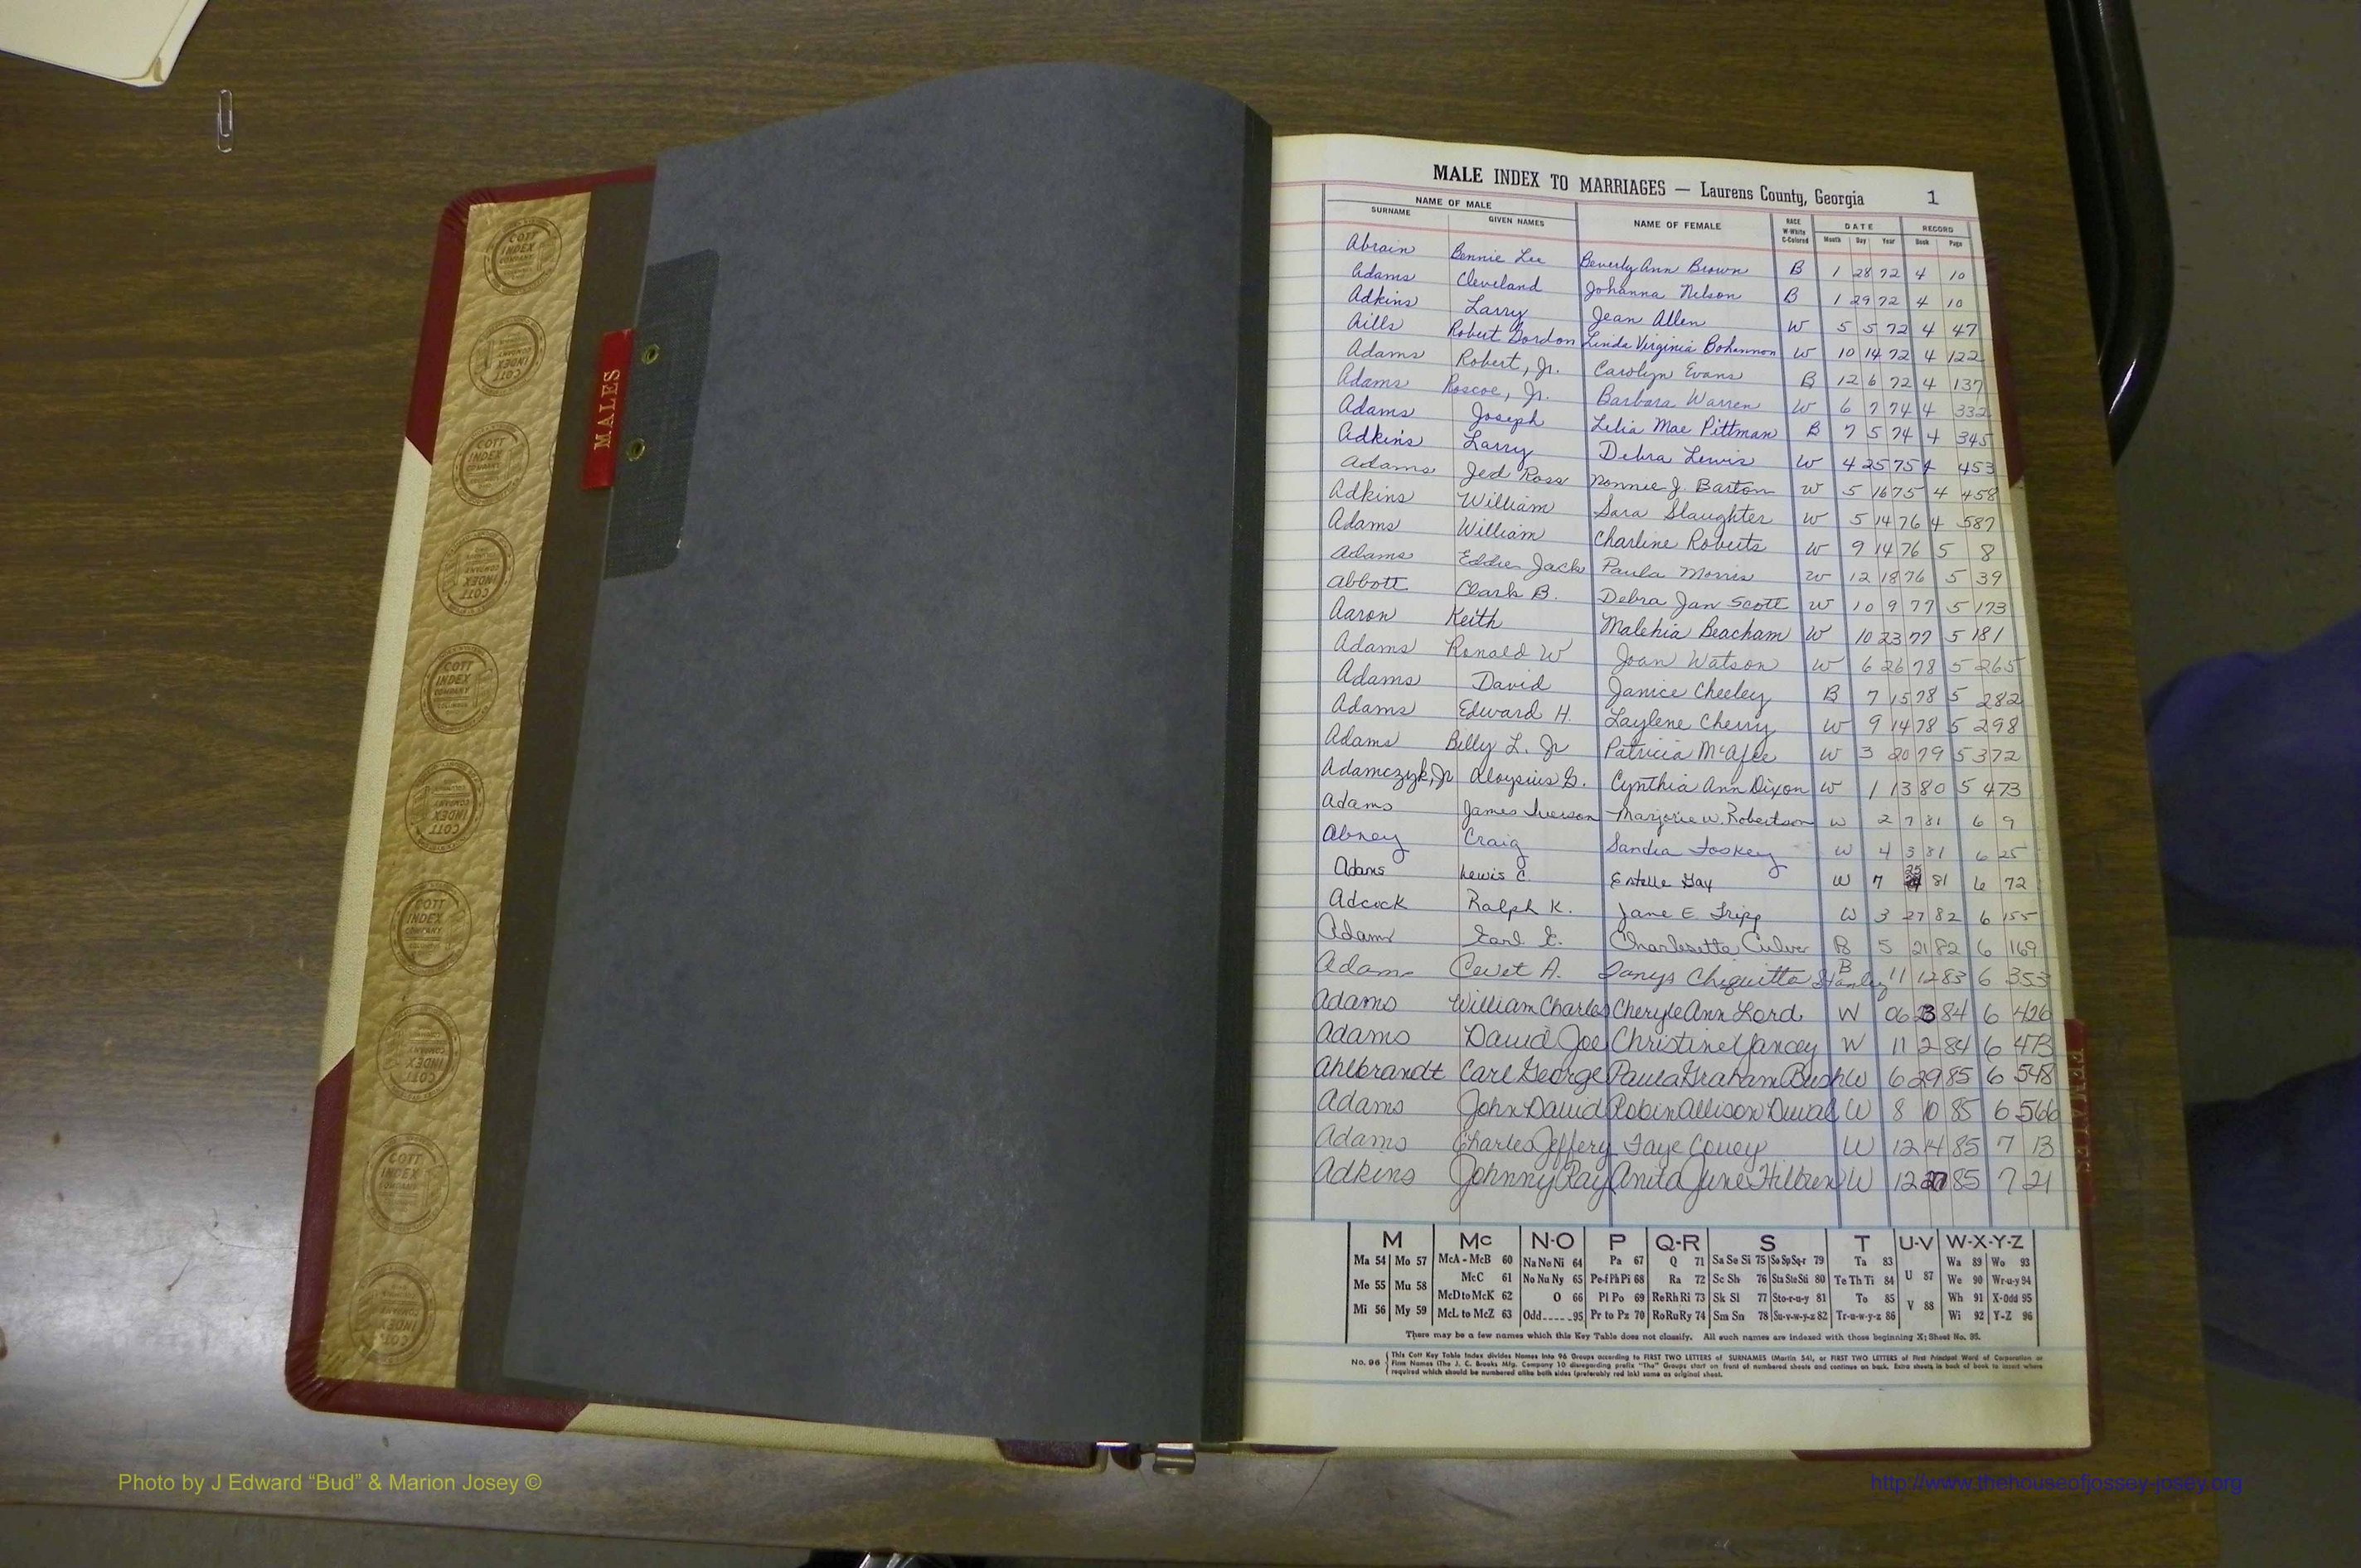 MALES
COTT INDEX COMPANY
MALE INDEX TO MARRIAGES — Laurens County, Georgia 1
NAME OF MALE NAME OF FEMALE RACE W-White C-Colored DATE RECORD
SURNAME GIVEN NAMES Month Day Year Book Page
Abrain Bennie Lee Beverly Ann Brown B 1 28 72 4 10
Adams Cleveland Johanna Nelson B 1 29 72 4 10
Adkins Larry Jean Allen W 5 5 72 4 47
Aills Robert Gordon Linda Virginia Bohannon W 10 14 72 4 122
Adams Robert, Jr. Carolyn Evans B 12 6 72 4 137
Adams Roscoe, Jr. Barbara Warren W 6 7 74 4 332
Adams Joseph Lelia Mae Pittman B 7 5 74 4 345
Adkins Larry Debra Lewis W 4 25 75 4 453
Adams Jed Ross Nonnie J. Barton W 5 16 75 4 458
Adkins William Sara Slaughter W 5 14 76 4 587
Adams William Charline Roberts W 9 14 76 5 8
Adams Eddie Jack Paula Morris W 12 18 76 5 39
Abbott Clark B. Debra Jan Scott W 10 9 77 5 173
Aaron Keith Malehia Beacham W 10 23 77 5 181
Adams Ronald W Joan Watson W 6 26 78 5 265
Adams David Janice Cheeley B 7 15 78 5 282
Adams Edward H. Laylene Cherry W 9 14 78 5 298
Adams Billy L. Jr Patricia McAfee W 3 20 79 5 372
Adamczyk, Jr Aloysius G. Cynthia Ann Dixon W 1 13 80 5 473
Adams James Iverson Marjorie W. Robertson W 2 7 81 6 9
Abney Craig Sandra Foskey W 4 3 81 6 25
Adams Lewis C. Estelle Gay W 7 25 81 6 72
Adcock Ralph K. Jane E. Tripp W 3 27 82 6 155
Adams Earl E. Charlesetta Culver B 5 21 82 6 169
Adams Cevet A. Tanys Chiquitta Stanley B 11 12 83 6 353
Adams William Charles Cheryle Ann Lord W 06 23 84 6 426
Adams David Joe Christine Yancey W 11 2 84 6 473
Ahlbrandt Carl George Paula Graham Bush W 6 29 85 6 548
Adams John David Robin Allison Duval W 8 10 85 6 566
Adams Charles Jeffery Faye Covey W 12 4 85 7 13
Adkins Johnny Ray Anita June Hilbun W 12 27 85 7 21
M Mc N-O P Q-R S T U-V W-X-Y-Z
Ma 54 Mo 57 McA - McB 60 Na Ne Ni 64 Pa 67 Q 71 Sa Se Si 75 So Sp Sq-r 79 Ta 83 U 87 Wa 89 Wo 93
Me 55 Mu 58 McC 61 No Nu Ny 65 Pe-f Ph Pi 68 Ra 72 Sc Sh 76 Sta Ste Sti 80 Te Th Ti 84 We 90 Wr-u-y 94
McD to McK 62 O 66 Pl Po 69 Re Rh Ri 73 Sk Sl 77 Sto-r-u-y 81 To 85 V 88 Wh 91 X-Odd 95
Mi 56 My 59 McL to McZ 63 Odd-----95 Pr to Pz 70 Ro Ru Ry 74 Sm Sn 78 Su-v-w-y-z 82 Tr-u-w-y-z 86 Wi 92 Y-Z 96
There may be a few names which this Key Table does not classify. All such names are indexed with those beginning X; Sheet No. 95.
No. 96 This Cott Key Table Index divides Names into 96 Groups according to FIRST TWO LETTERS of SURNAMES (Martin 54), or FIRST TWO LETTERS of First Principal Word of Corporation or
Firm Names (The J. C. Brooks Mfg. Company 10 disregarding prefix "The" Groups start on front of numbered sheets and continue on back. Extra sheets in back of book to insert where
required which should be numbered alike both sides (preferably red ink) same as original sheet.
Photo by J Edward “Bud” & Marion Josey ©
http://www.thehouseofjossey-josey.org